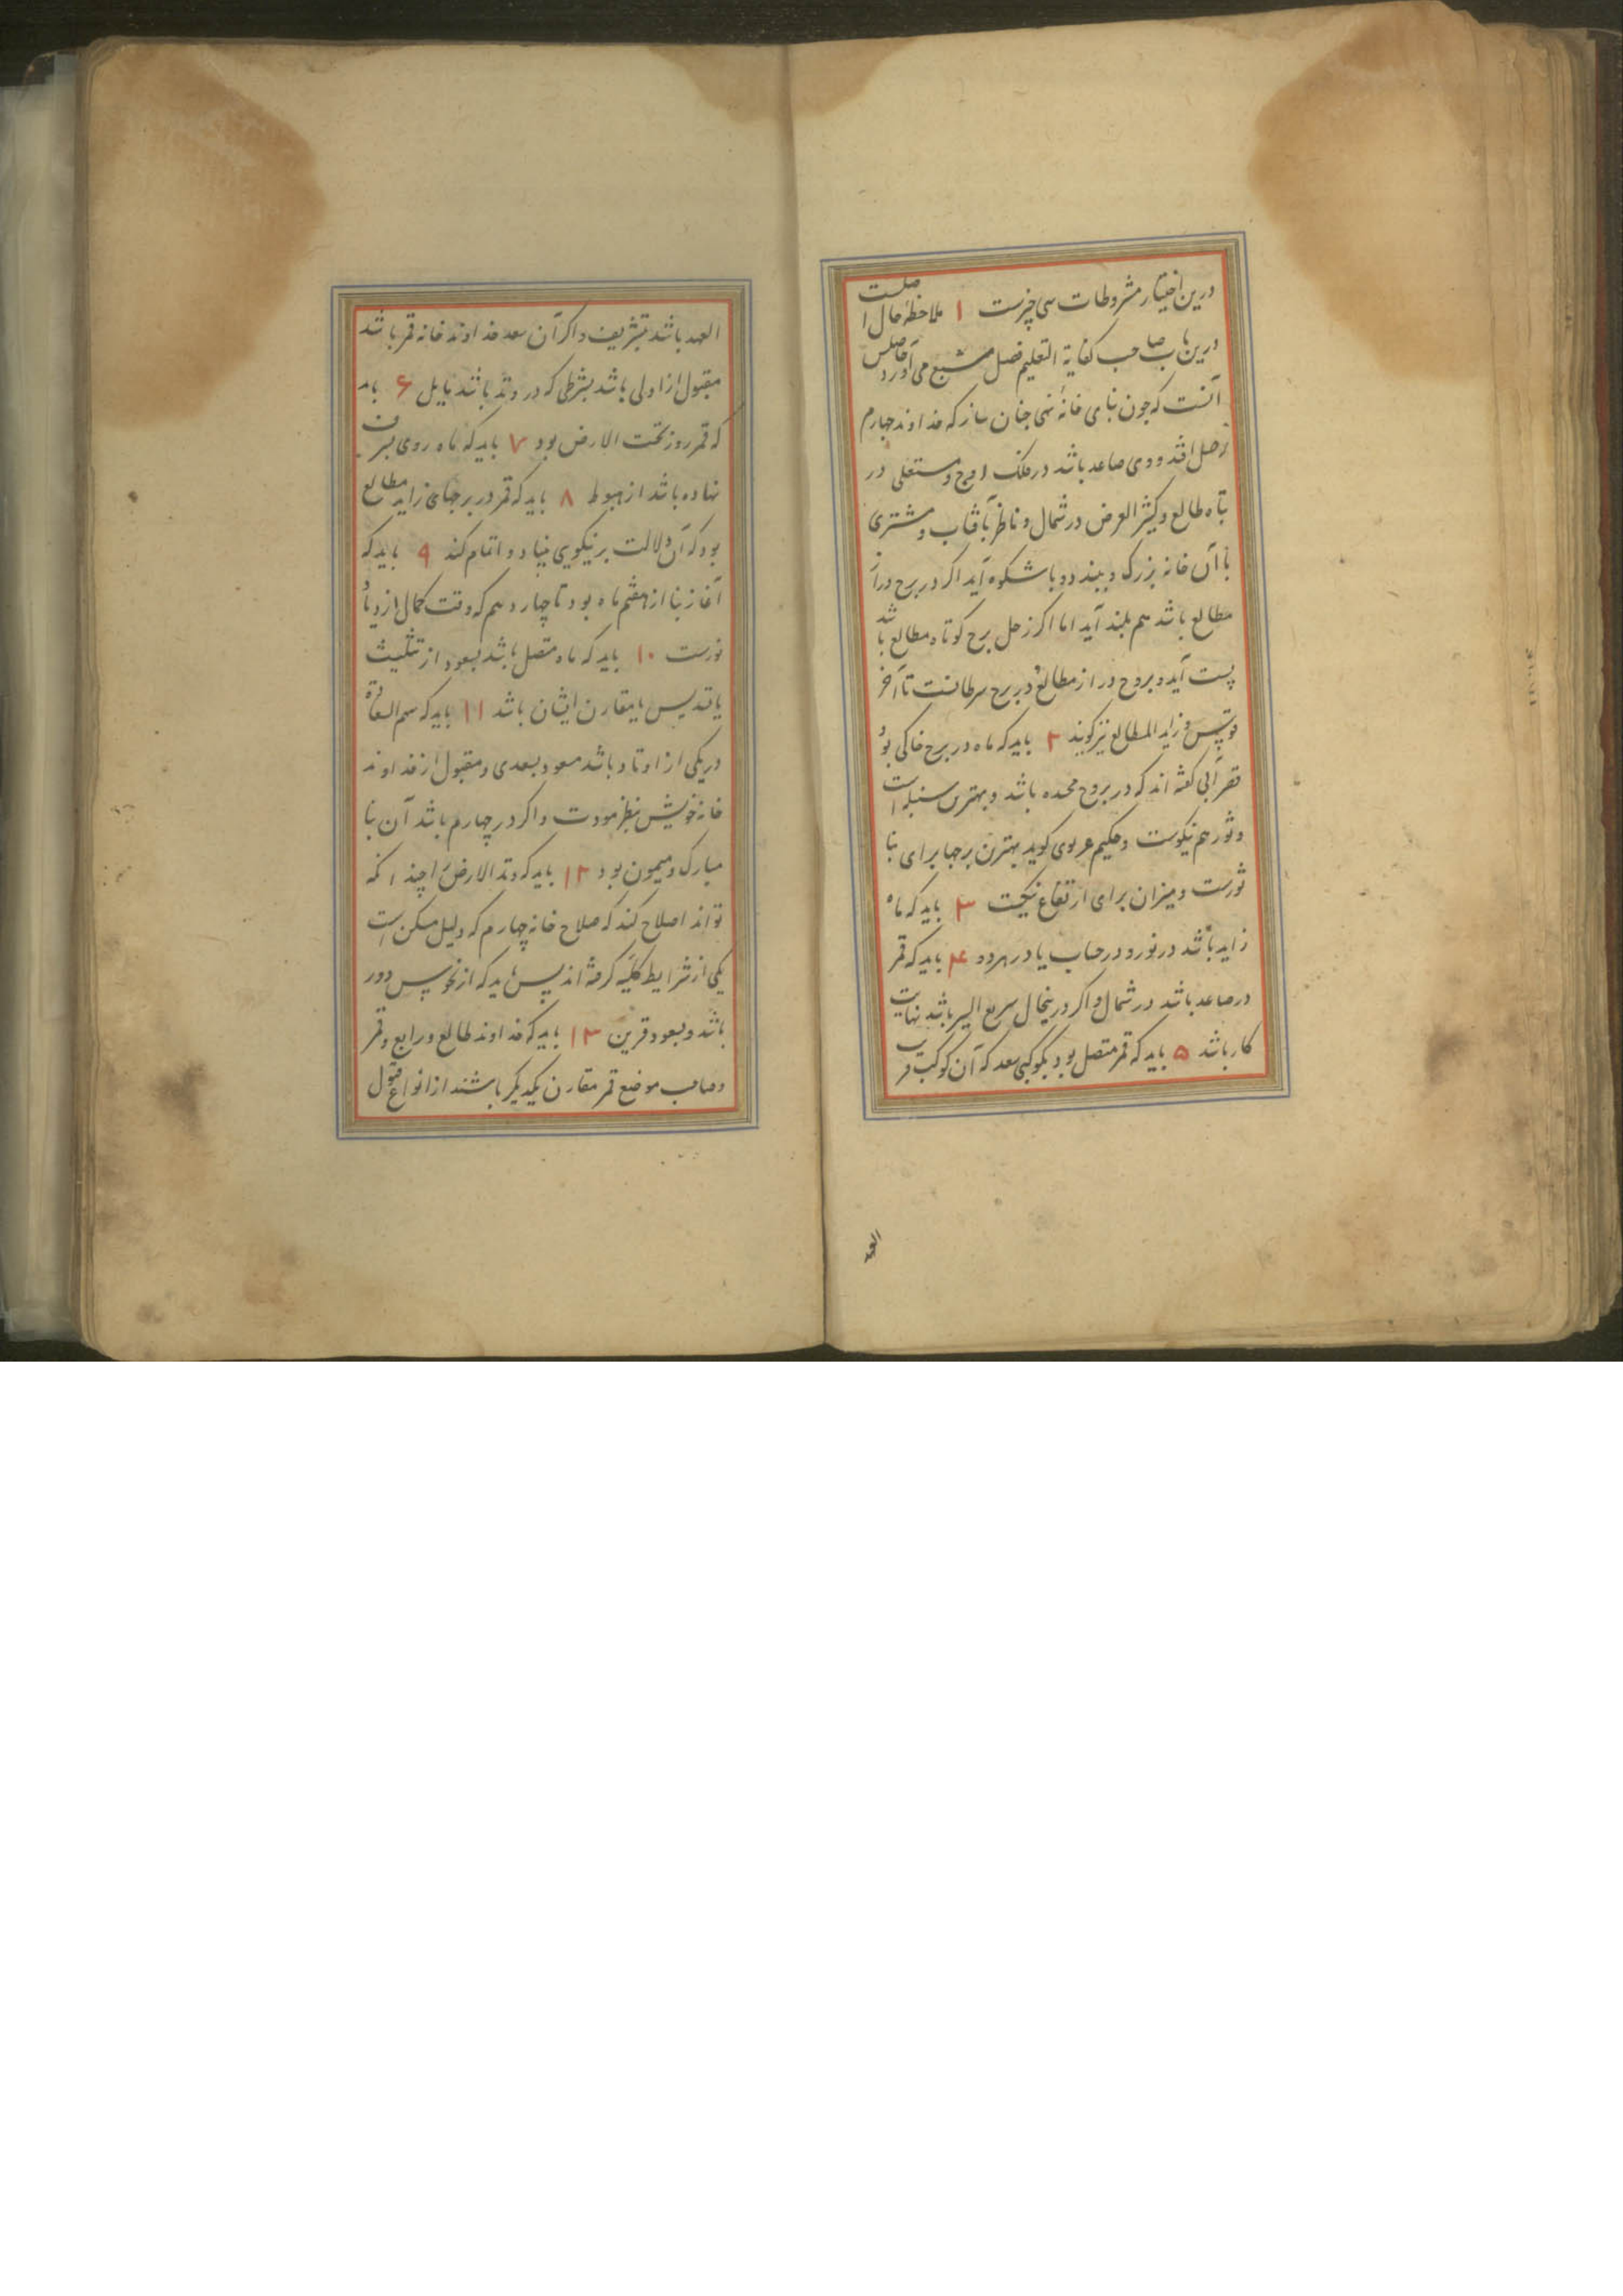 درین اختیار مشروطات سی چیزست ۱ ملاحظهٔ حال اصلست
درین باب صاحب کفایة التعلیم فصل مشبع می آورد حاصلش
آنست که چون بنای خانهٔ نهی چنان ساز که خداوند چهارم
زحل افتد و وی صاعد باشد در فلک اوج و مستعلی در
طالع و کثیر العرض در شمال و ناظر بآفتاب و مشتری
تا آن خانه بزرگ و بلند و با شکوه آید اگر در برج دراز
مطالع باشد هم بلند آید اما اگر زحل برج کوتاه مطالع باشد
پست آید و بروج دراز مطالع از برج سرطانست تا آخر
قوس و زاید المطالع نیز گویند ۲ باید که ماه در برج خاکی بود
قصرانی گفته اند که در بروج محمده باشد و بهترین سنبله است
و ثور هم نیکوست و حکیم هروی گوید بهترین برجها برای بنا
ثورست و میزان برای ارتفاع نیکست ۳ باید که ماه
زاید باشد در نور و در حساب یا در هر دو ۴ باید که قمر
در صاعد باشد در شمال و اگر درینحال سریع السیر باشد نهایت
کار باشد ۵ باید که قمر متصل بود بکوکبی سعد که آن کوکب قریب
العهد
العهد باشد بتشریف و اگر آن سعد خداوند خانه قمر باشد
مقبول ازو اولی باشد بشرطی که در وتد باشد یا مایل ۶ باید
که قمر روز تحت الارض بود ۷ باید که ماه روی بشرف
نهاده باشد از هبوط ۸ باید که قمر در برجهای زاید مطالع
بود که آن دلالت بر نیکویی بنیاد و اتمام کند ۹ باید که
آغاز بنا از هفتم ماه بود تا چهاردهم که وقت کمال ازدیاد
نورست ۱۰ باید که ماه متصل باشد بسعود از تثلیث
یا تسدیس یا مقارن ایشان باشد ۱۱ باید که سهم السعادة
در یکی از اوتاد باشد مسعود بسعدی و مقبول از خداوند
خانه خویش بنظر مودت و اگر در چهارم باشد آن بنا
مبارک و میمون بود ۱۲ باید که وتد الارض را چندانکه
تواند اصلاح کند که صلاح خانه چهارم که دلیل مسکن است
یکی از شرایط کلیه گرفته اند پس باید که از نحوس دور
باشد و بسعود قرین ۱۳ باید که خداوند طالع و رابع و قمر
و صاحب موضع قمر مقارن یکدیگر باشند از انواع قبول